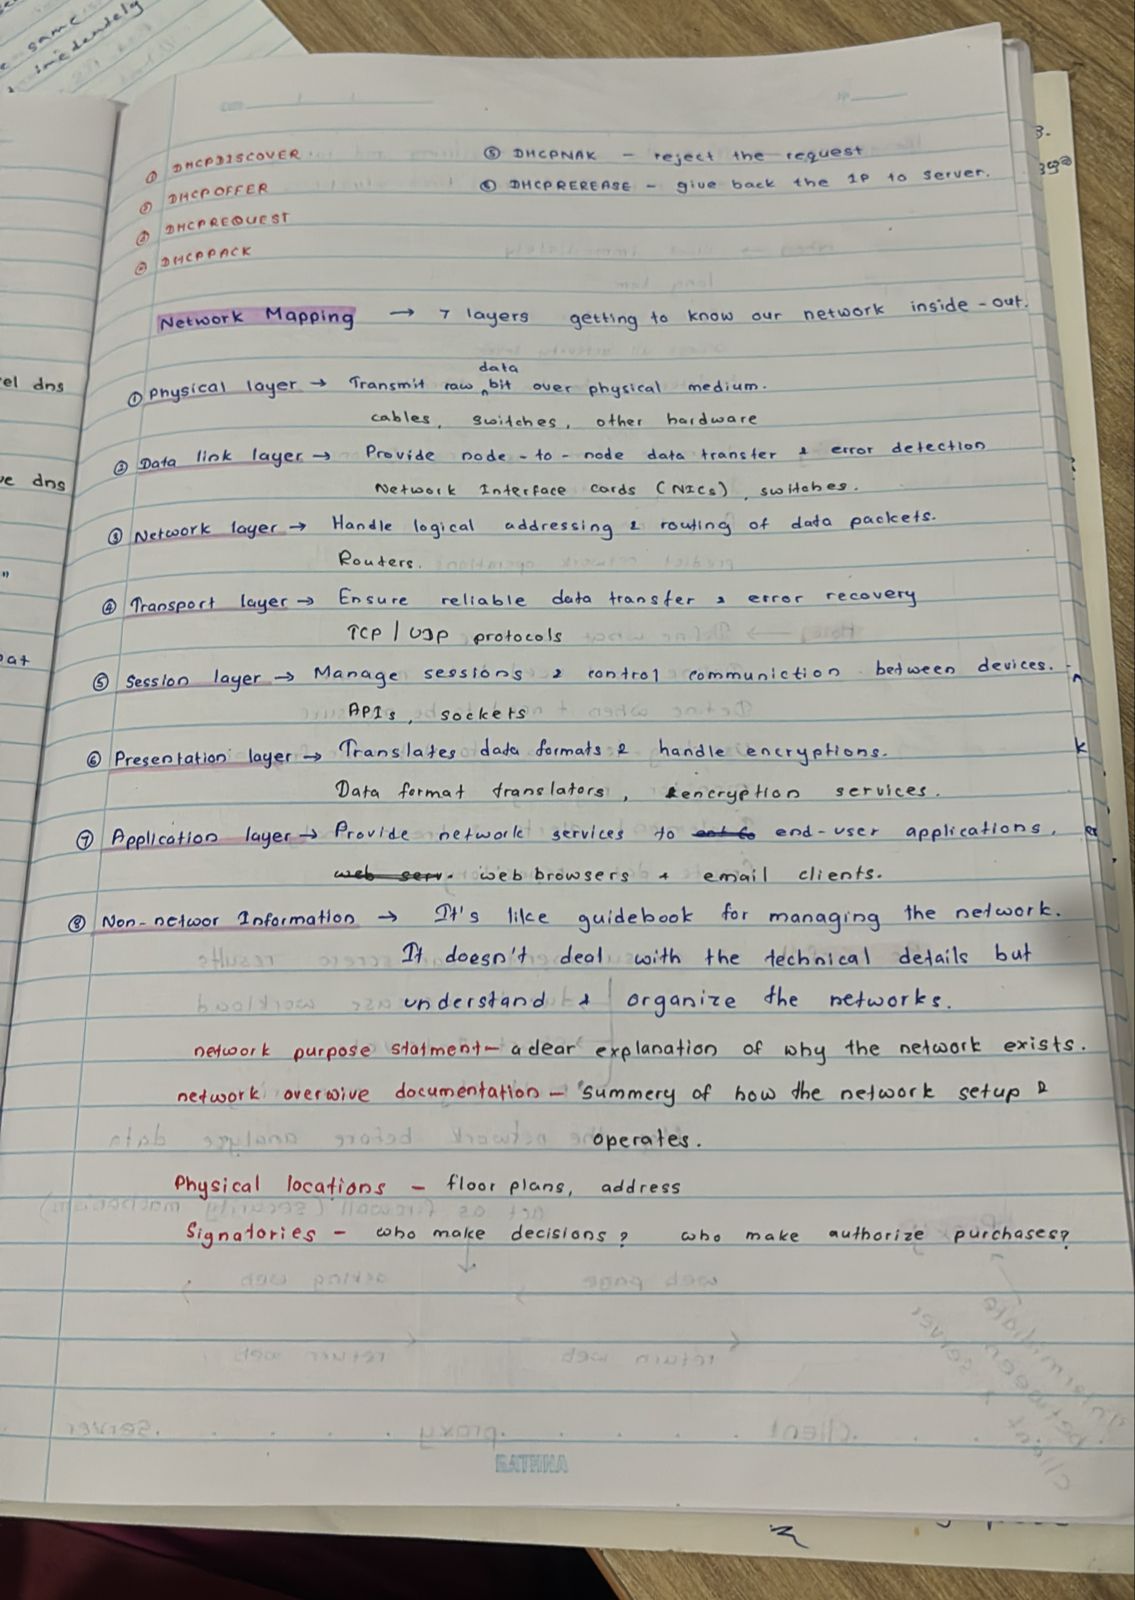 same
imedendely
① DHCPDISCOVER
② DHCPOFFER
③ DHCPREQUEST
④ DHCPPACK
⑤ DHCPNAK – reject the request
⑥ DHCPREREASE – give back the IP to server.
Network Mapping → 7 layers getting to know our network inside-out.
data
① Physical layer → Transmit raw ^bit over physical medium.
cables, switches, other hardware
② Data link layer → Provide node-to-node data transfer & error detection
Network Interface cards (NICs), switches.
③ Network layer → Handle logical addressing & routing of data packets.
Routers.
④ Transport layer → Ensure reliable data transfer & error recovery
TCP / UDP protocols
⑤ Session layer → Manage sessions & control communiction between devices.
APIs, sockets
⑥ Presentation layer → Translates data formats & handle encryptions.
Data format translators, encryption services.
⑦ Application layer → Provide network services to end-user applications.
web serv. web browsers & email clients.
⑧ Non-networ Information → It's like guidebook for managing the network.
It doesn't deal with the technical details but
understand & organize the networks.
network purpose statment – a clear explanation of why the network exists.
network overwive documentation – summery of how the network setup &
operates.
Physical locations – floor plans, address
Signatories – who make decisions? who make authorize purchases?
RATHNA
el dns
e dns